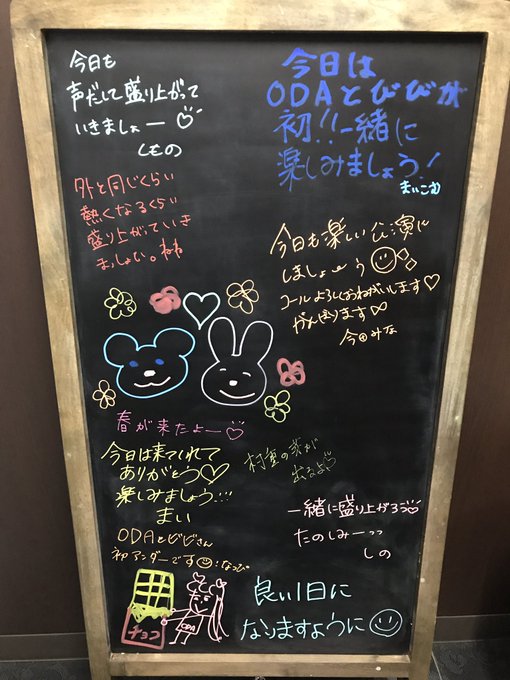 今日も
声だして盛り上がって
いきましょー♡
しもの
今日は
ODAとびびが
初!!一緒に
楽しみましょう!
まいこむ
外と同じくらい
熱くなるくらい
盛り上がっていき
まっしょい。
今日も楽しい公演に
しましょーう
コールよろしくおねがいします♡
がんばります
今田みな
春が来たよー♡
今日は来てくれて
ありがとう♡
楽しみましょう!!!
まい
村重の芽が
出るよ♡
一緒に盛り上がろう♡
たのしみーっっ
しの
ODAとビビさん
初アンダーです☺:なつぴ
チョコ
ODA
良い1日に
なりますように☺